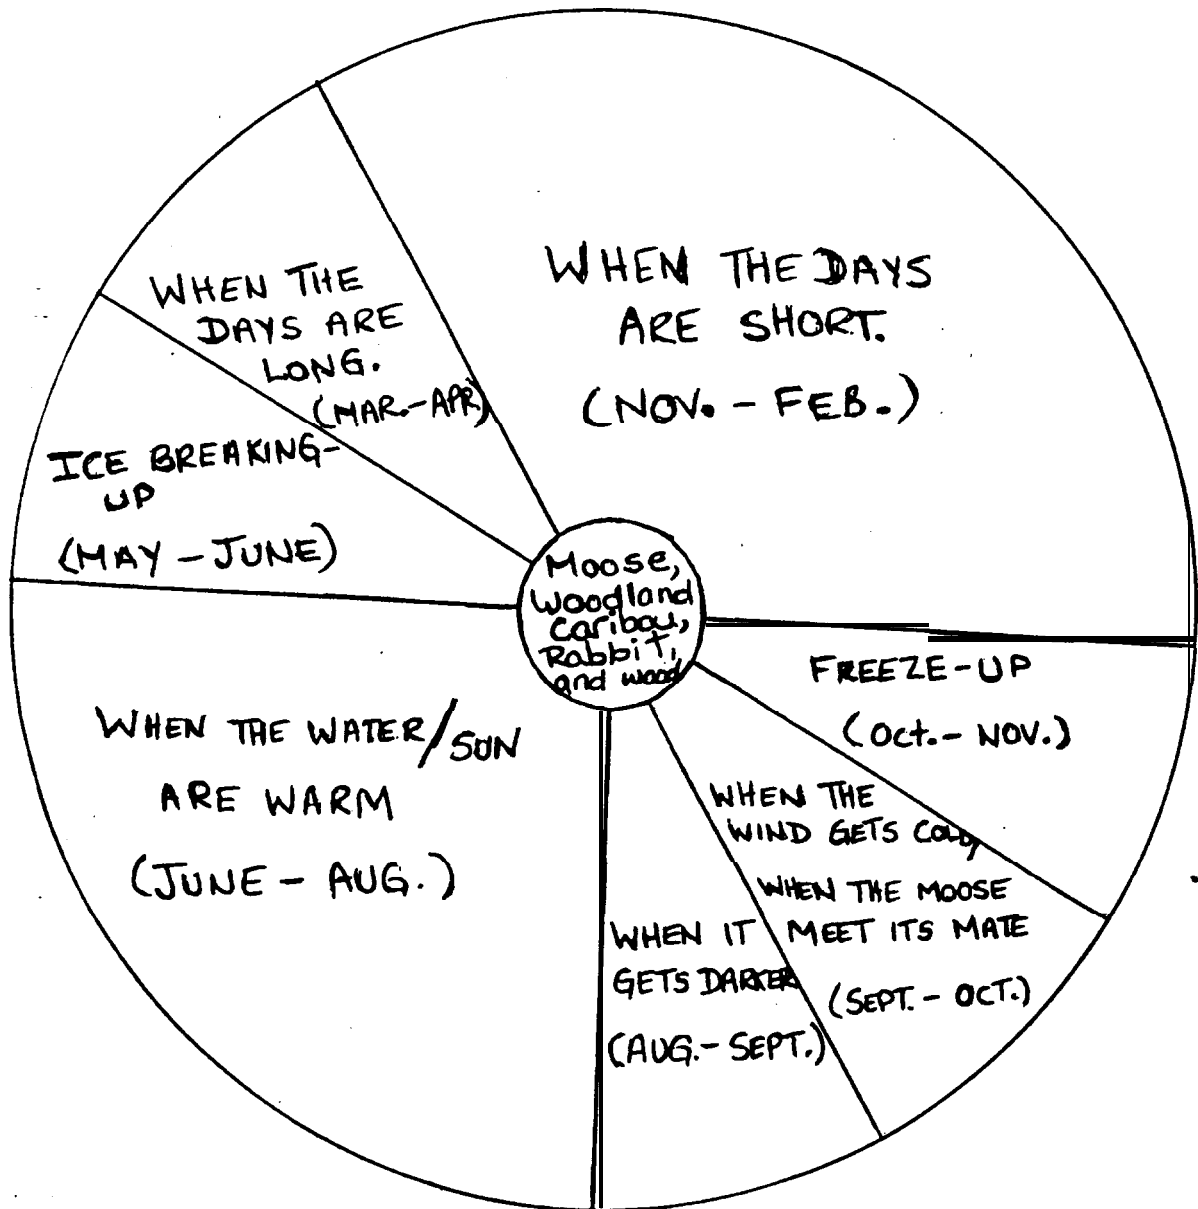 WHEN THE DAYS
ARE SHORT.
(NOV. - FEB.)
WHEN THE
DAYS ARE
LONG.
(MAR.-APR)
ICE BREAKING-
UP
(MAY - JUNE)
Moose,
Woodland
Caribou,
Rabbit,
and wood
FREEZE-UP
(Oct. - NOV.)
WHEN THE WATER/SUN
ARE WARM
(JUNE - AUG.)
WHEN THE
WIND GETS COLD,
WHEN THE MOOSE
MEET ITS MATE
(SEPT. - OCT.)
WHEN IT
GETS DARKER
(AUG.- SEPT.)